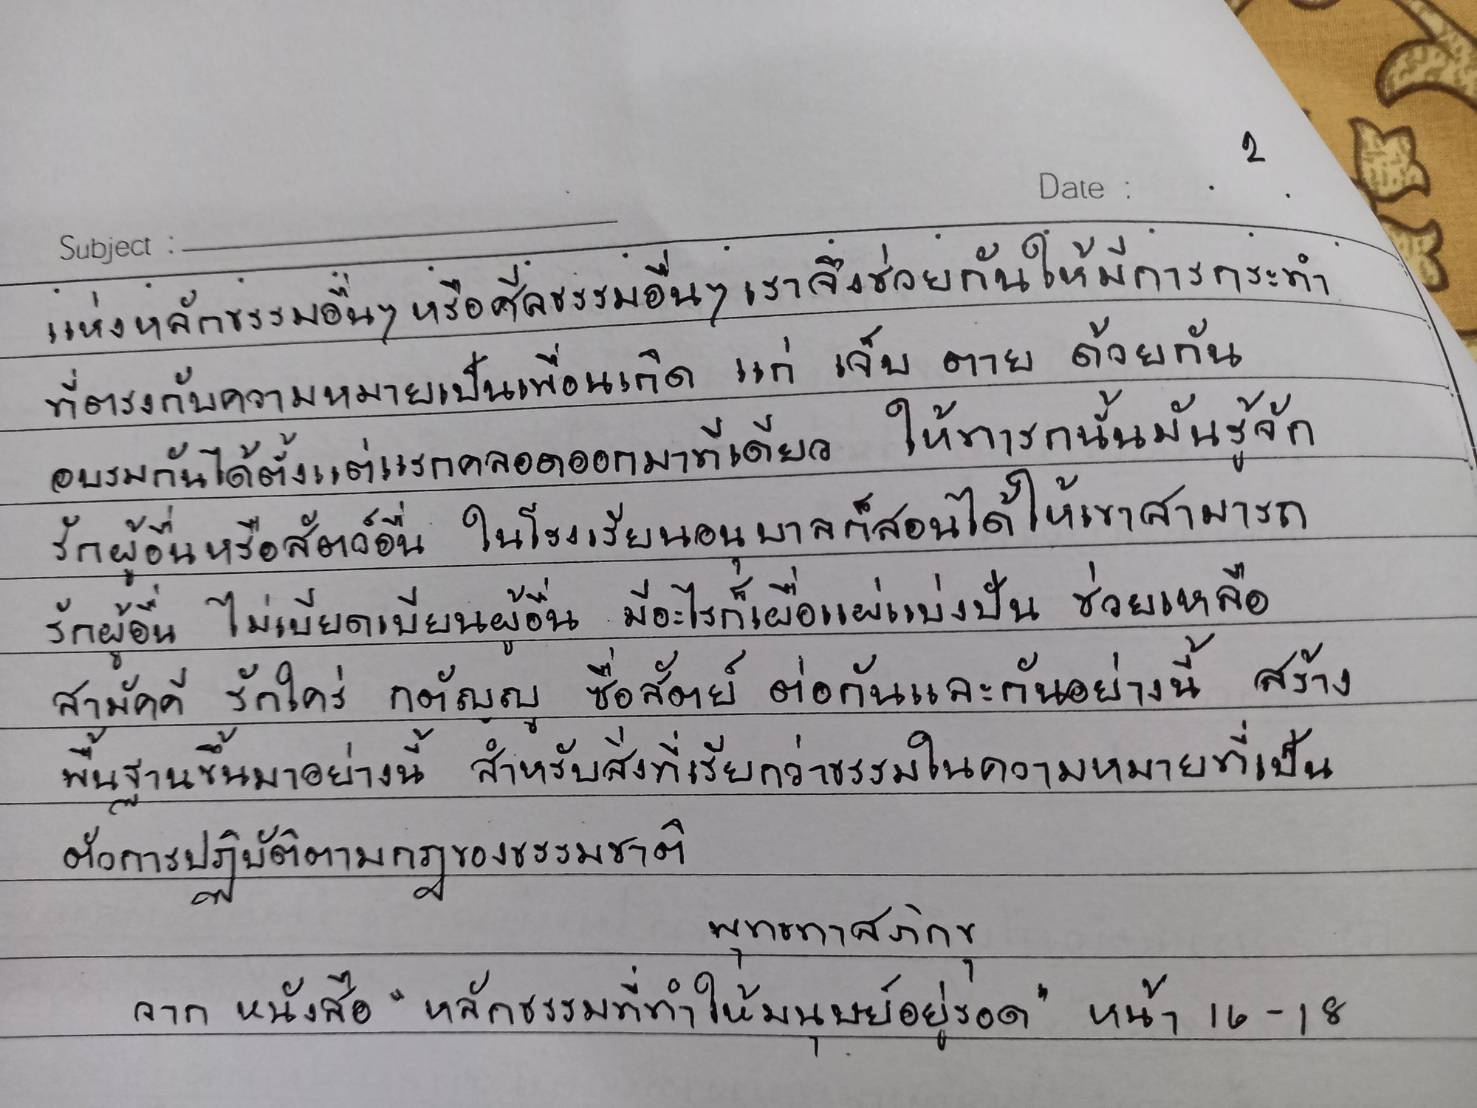 2
Date :
Subject :
แห่งหลักธรรมอื่นๆ หรือศีลธรรมอื่นๆ เราจึงช่วยกันให้มีการกระทำ
ที่ตรงกับความหมายเป็นเพื่อนเกิด แก่ เจ็บ ตาย ด้วยกัน
อบรมกันได้ตั้งแต่แรกคลอดออกมาทีเดียว ให้ทารกนั้นมันรู้จัก
รักผู้อื่นหรือสัตว์อื่น ในโรงเรียนอนุบาลก็สอนได้ให้เขาสามารถ
รักผู้อื่น ไม่เบียดเบียนผู้อื่น มีอะไรก็เผื่อแผ่แบ่งปัน ช่วยเหลือ
สามัคคี รักใคร่ กตัญญู ซื่อสัตย์ ต่อกันและกันอย่างนี้ สร้าง
พื้นฐานขึ้นมาอย่างนี้ สำหรับสิ่งที่เรียกว่าธรรมในความหมายที่เป็น
ตัวการปฏิบัติตามกฎของธรรมชาติ
พุทธทาสภิกขุ
จาก หนังสือ "หลักธรรมที่ทำให้มนุษย์อยู่รอด" หน้า 16-18